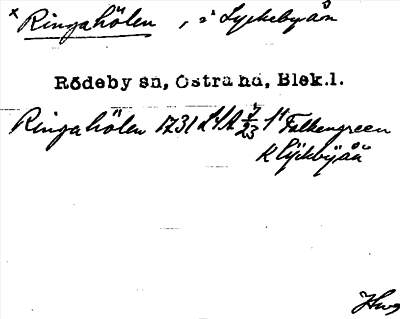 × Ringahölen, i Lyckebyån
Rödeby sn, Östra hd, Blek.l.
Ringahölen 1731 LSA 7/23 1" Falkengreen
K Lÿckbÿån